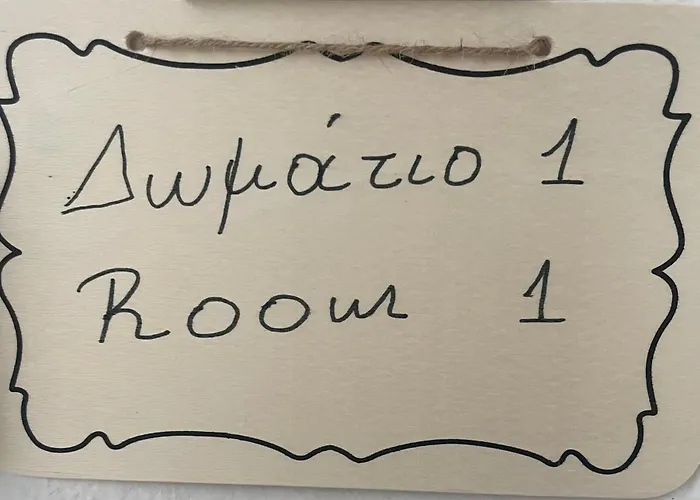 Δωμάτιο 1
Room 1